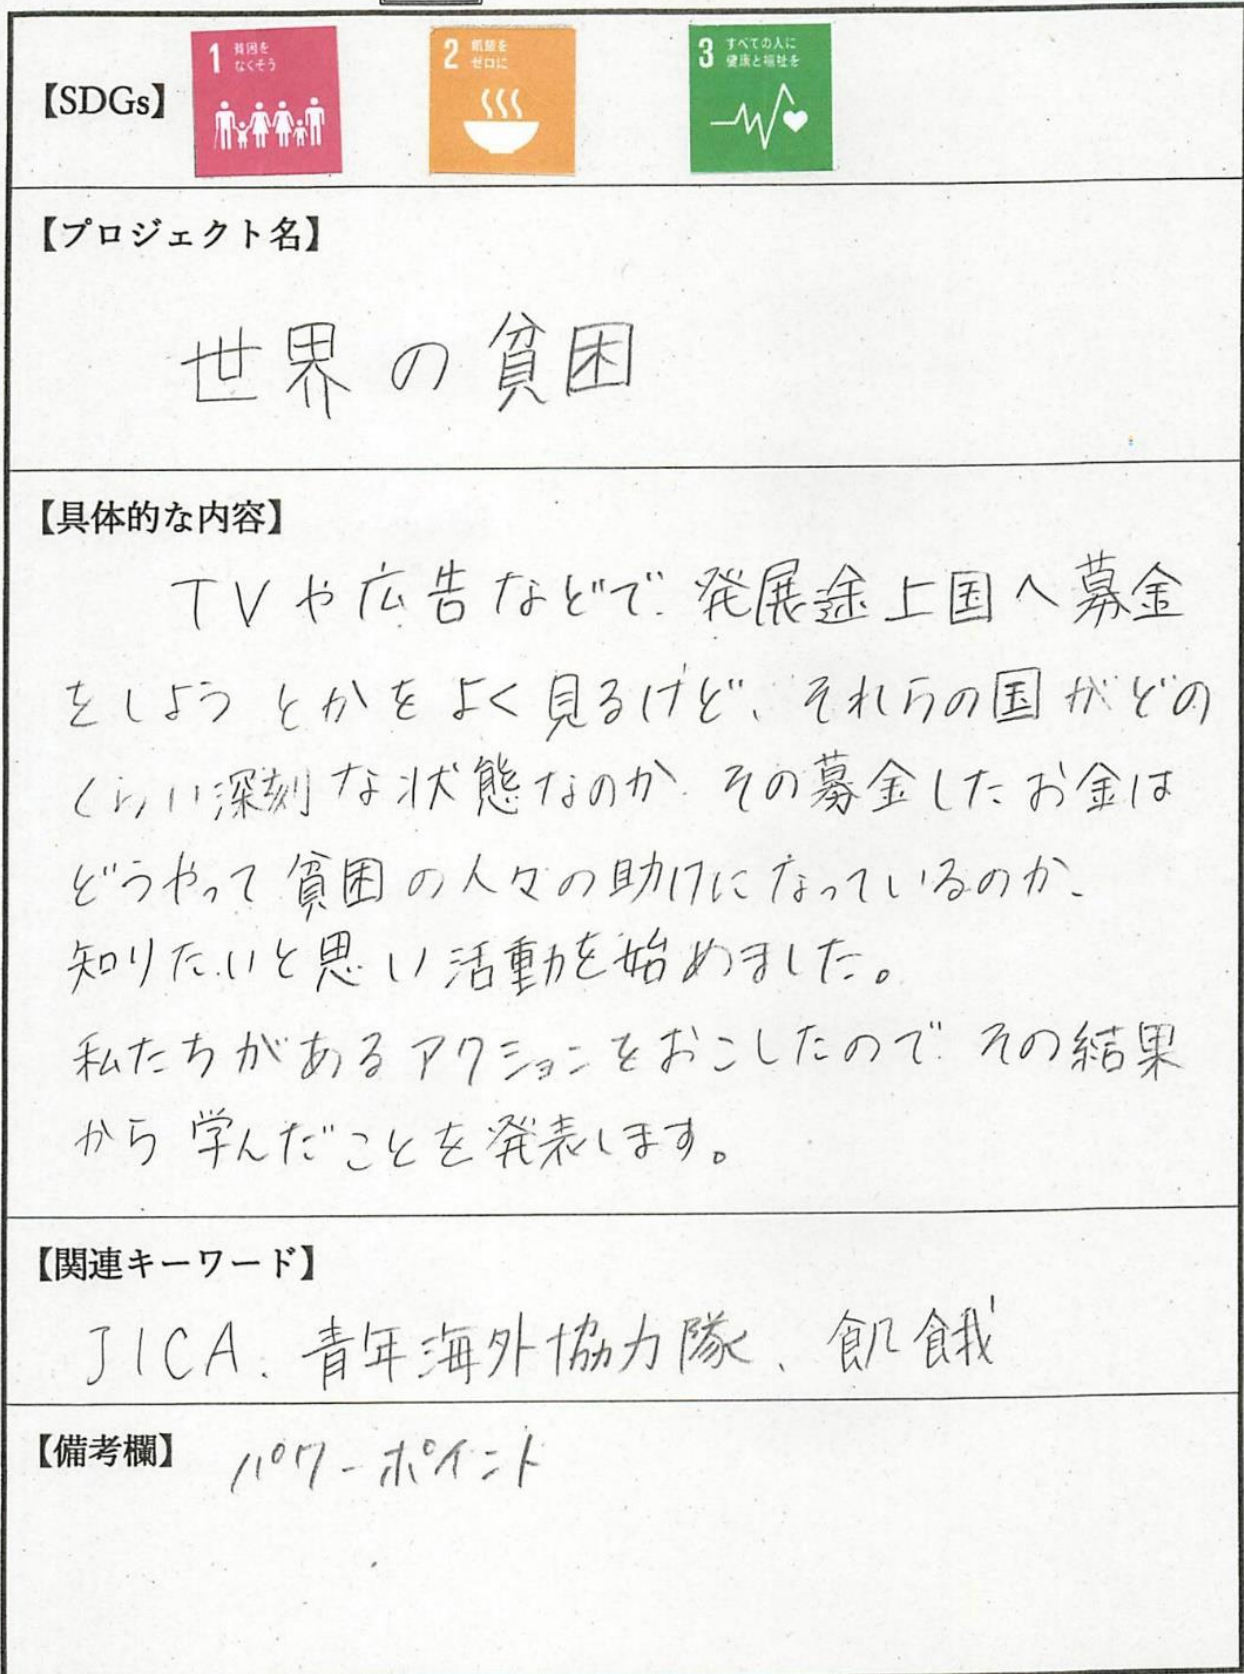 【SDGs】
1 貧困を
なくそう
2 飢餓を
ゼロに
3 すべての人に
健康と福祉を
【プロジェクト名】
世界の貧困
【具体的な内容】
TVや広告などで、発展途上国へ募金
をしようとかをよく見るけど、それらの国がどの
くらい深刻な状態なのか、その募金したお金は
どうやって貧困の人々の助けになっているのか、
知りたいと思い活動を始めました。
私たちがあるアクションをおこしたので、その結果
から学んだことを発表します。
【関連キーワード】
JICA、青年海外協力隊、飢餓
【備考欄】 パワーポイント